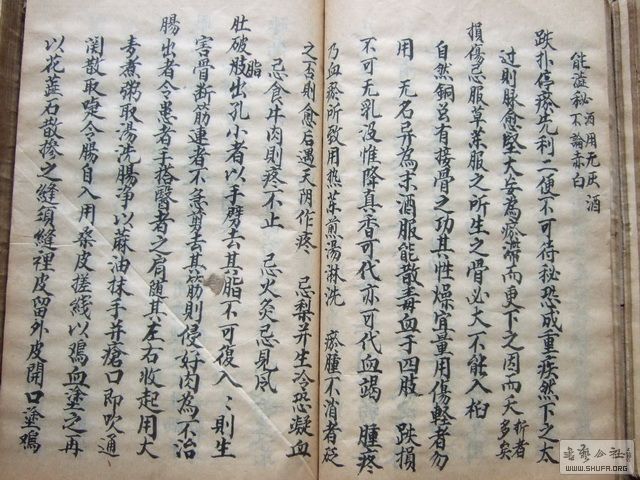 能溢秘不論赤白 酒用无灰酒
跌扑停瘀先利二便不可待秘恐成重疾然下之太
过則脉愈堅大安為瘀滯而更下之因而夭折者多矣
損傷忌服草藥服之所生之骨必大不能入柏
自然銅㒷有接骨之功其性燥宜量用傷輕者勿
用 无名异為末酒服能散毒血于四肢 跌損
不可无乳沒惟降真香可代亦可代血竭 腫疼
乃血瘀所致用热藥煎湯淋洗 瘀腫不消者砭
之否則愈后遇天阴作疼 忌梨并生冷恐凝血
忌食牛肉則疼不止 忌火灸忌見风
肚破脂出孔小者以手劈去其脂不可復入入則生
害骨断筋連者不急剪去其筋則侵好肉為不治
腸出者令患者手搭醫者之肩随其左右收起用大
麦煮粥取湯洗腸净以蔴油抹手并瘡口即吹通
関散取嚏令腸自入用桑皮搓线以鸡血塗之再
以花蕋石散摻之縫須縫裡皮留外皮開口塗鸡
書藝公社
WWW.SHUFA.ORG